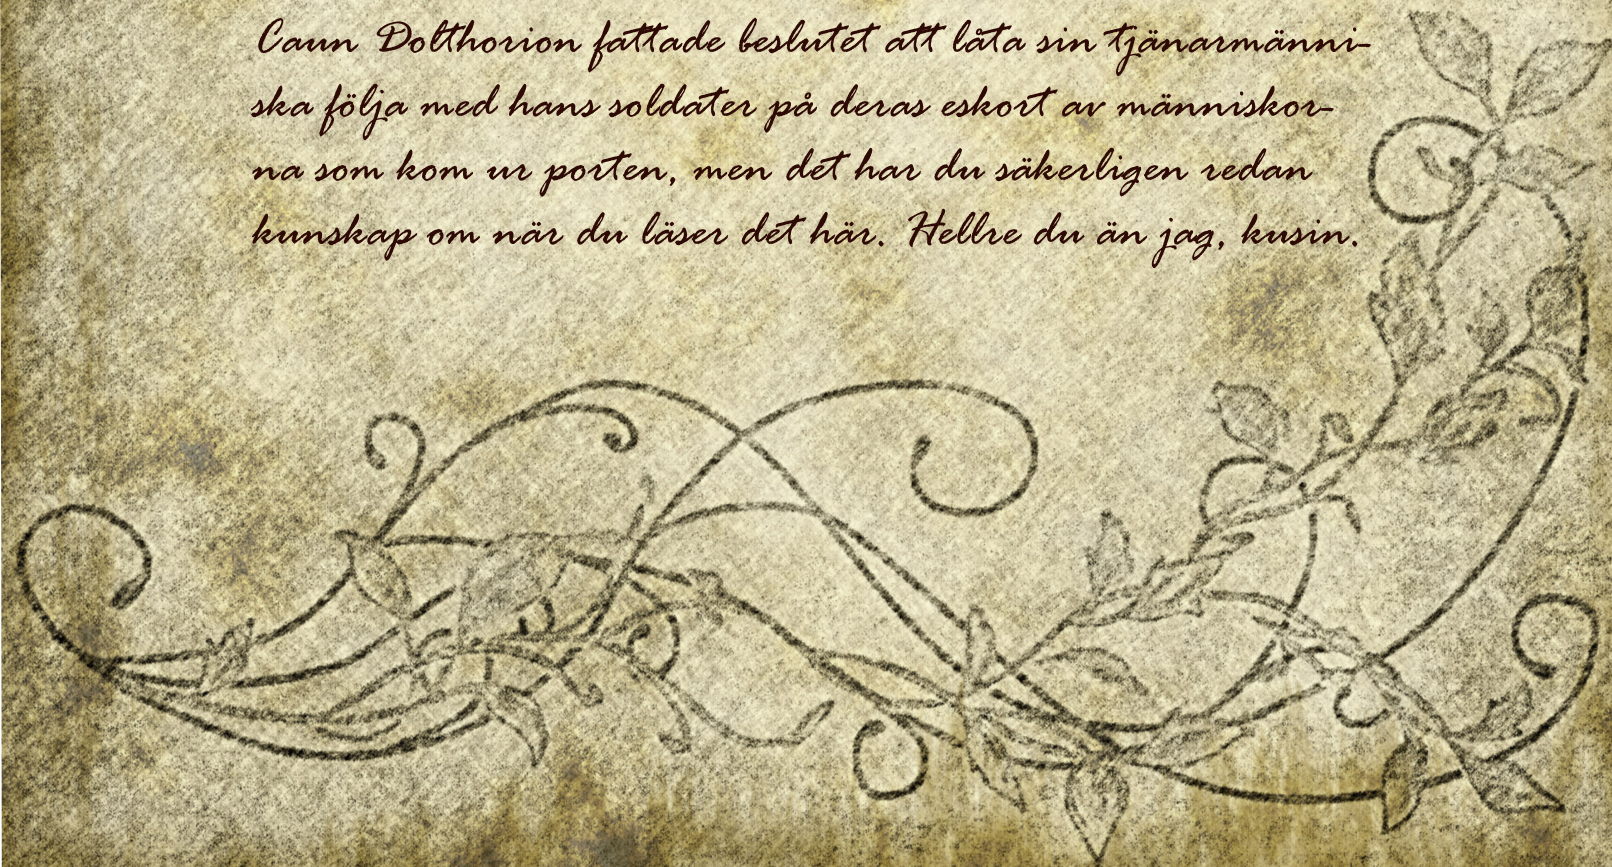 Caun Dolthorion fattade beslutet att låta sin tjänarmänni-
ska följa med hans soldater på deras eskort av människor-
na som kom ur porten, men det har du säkerligen redan
kunskap om när du läser det här. Hellre du än jag, kusin.